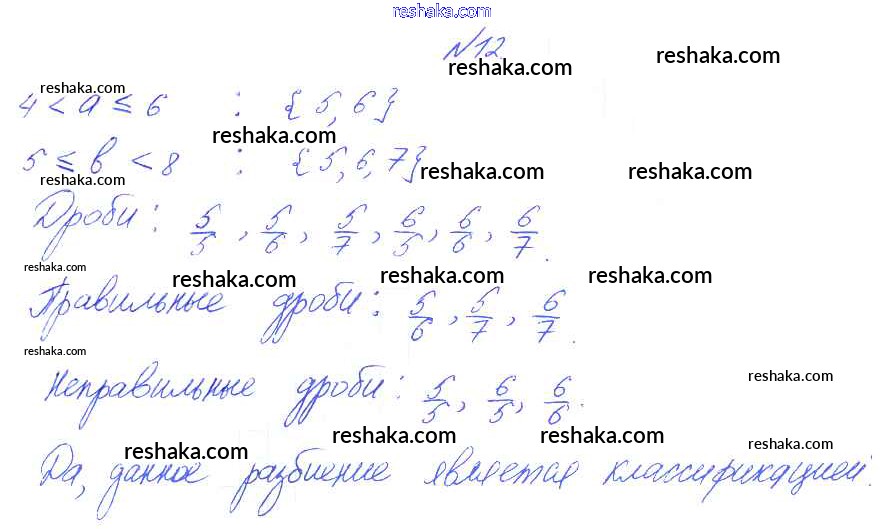 reshaka.com
№12
reshaka.com reshaka.com
reshaka.com
4 < a ≤ 6 : {5, 6}
reshaka.com
5 ≤ b < 8 : {5, 6, 7}
reshaka.com reshaka.com reshaka.com
Дроби: 5/5, 5/6, 5/7, 6/5, 6/6, 6/7.
reshaka.com reshaka.com reshaka.com reshaka.com
Правильные дроби: 5/6, 5/7, 6/7.
reshaka.com
reshaka.com
Неправильные дроби: 5/5, 6/5, 6/6.
reshaka.com reshaka.com reshaka.com reshaka.com
Да, данное разбиение является классификацией.